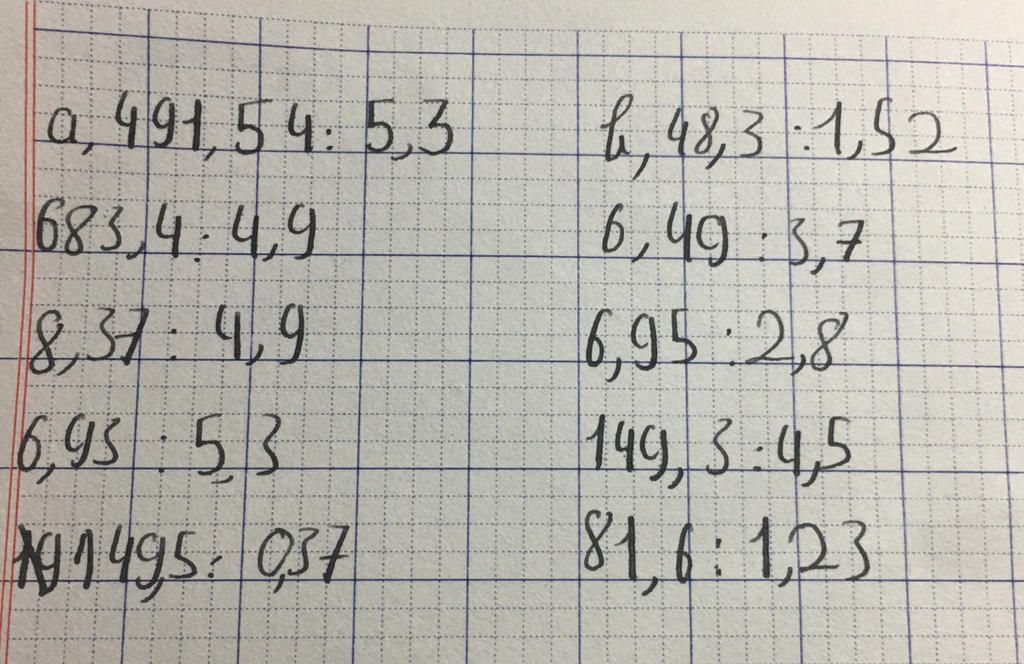 a, 491,54 : 5,3 b, 48,3 : 1,52
683,4 : 4,9 6,49 : 3,7
8,37 : 4,9 6,95 : 2,8
6,93 : 5,3 149,3 : 4,5
149,5 : 0,37 81,6 : 1,23